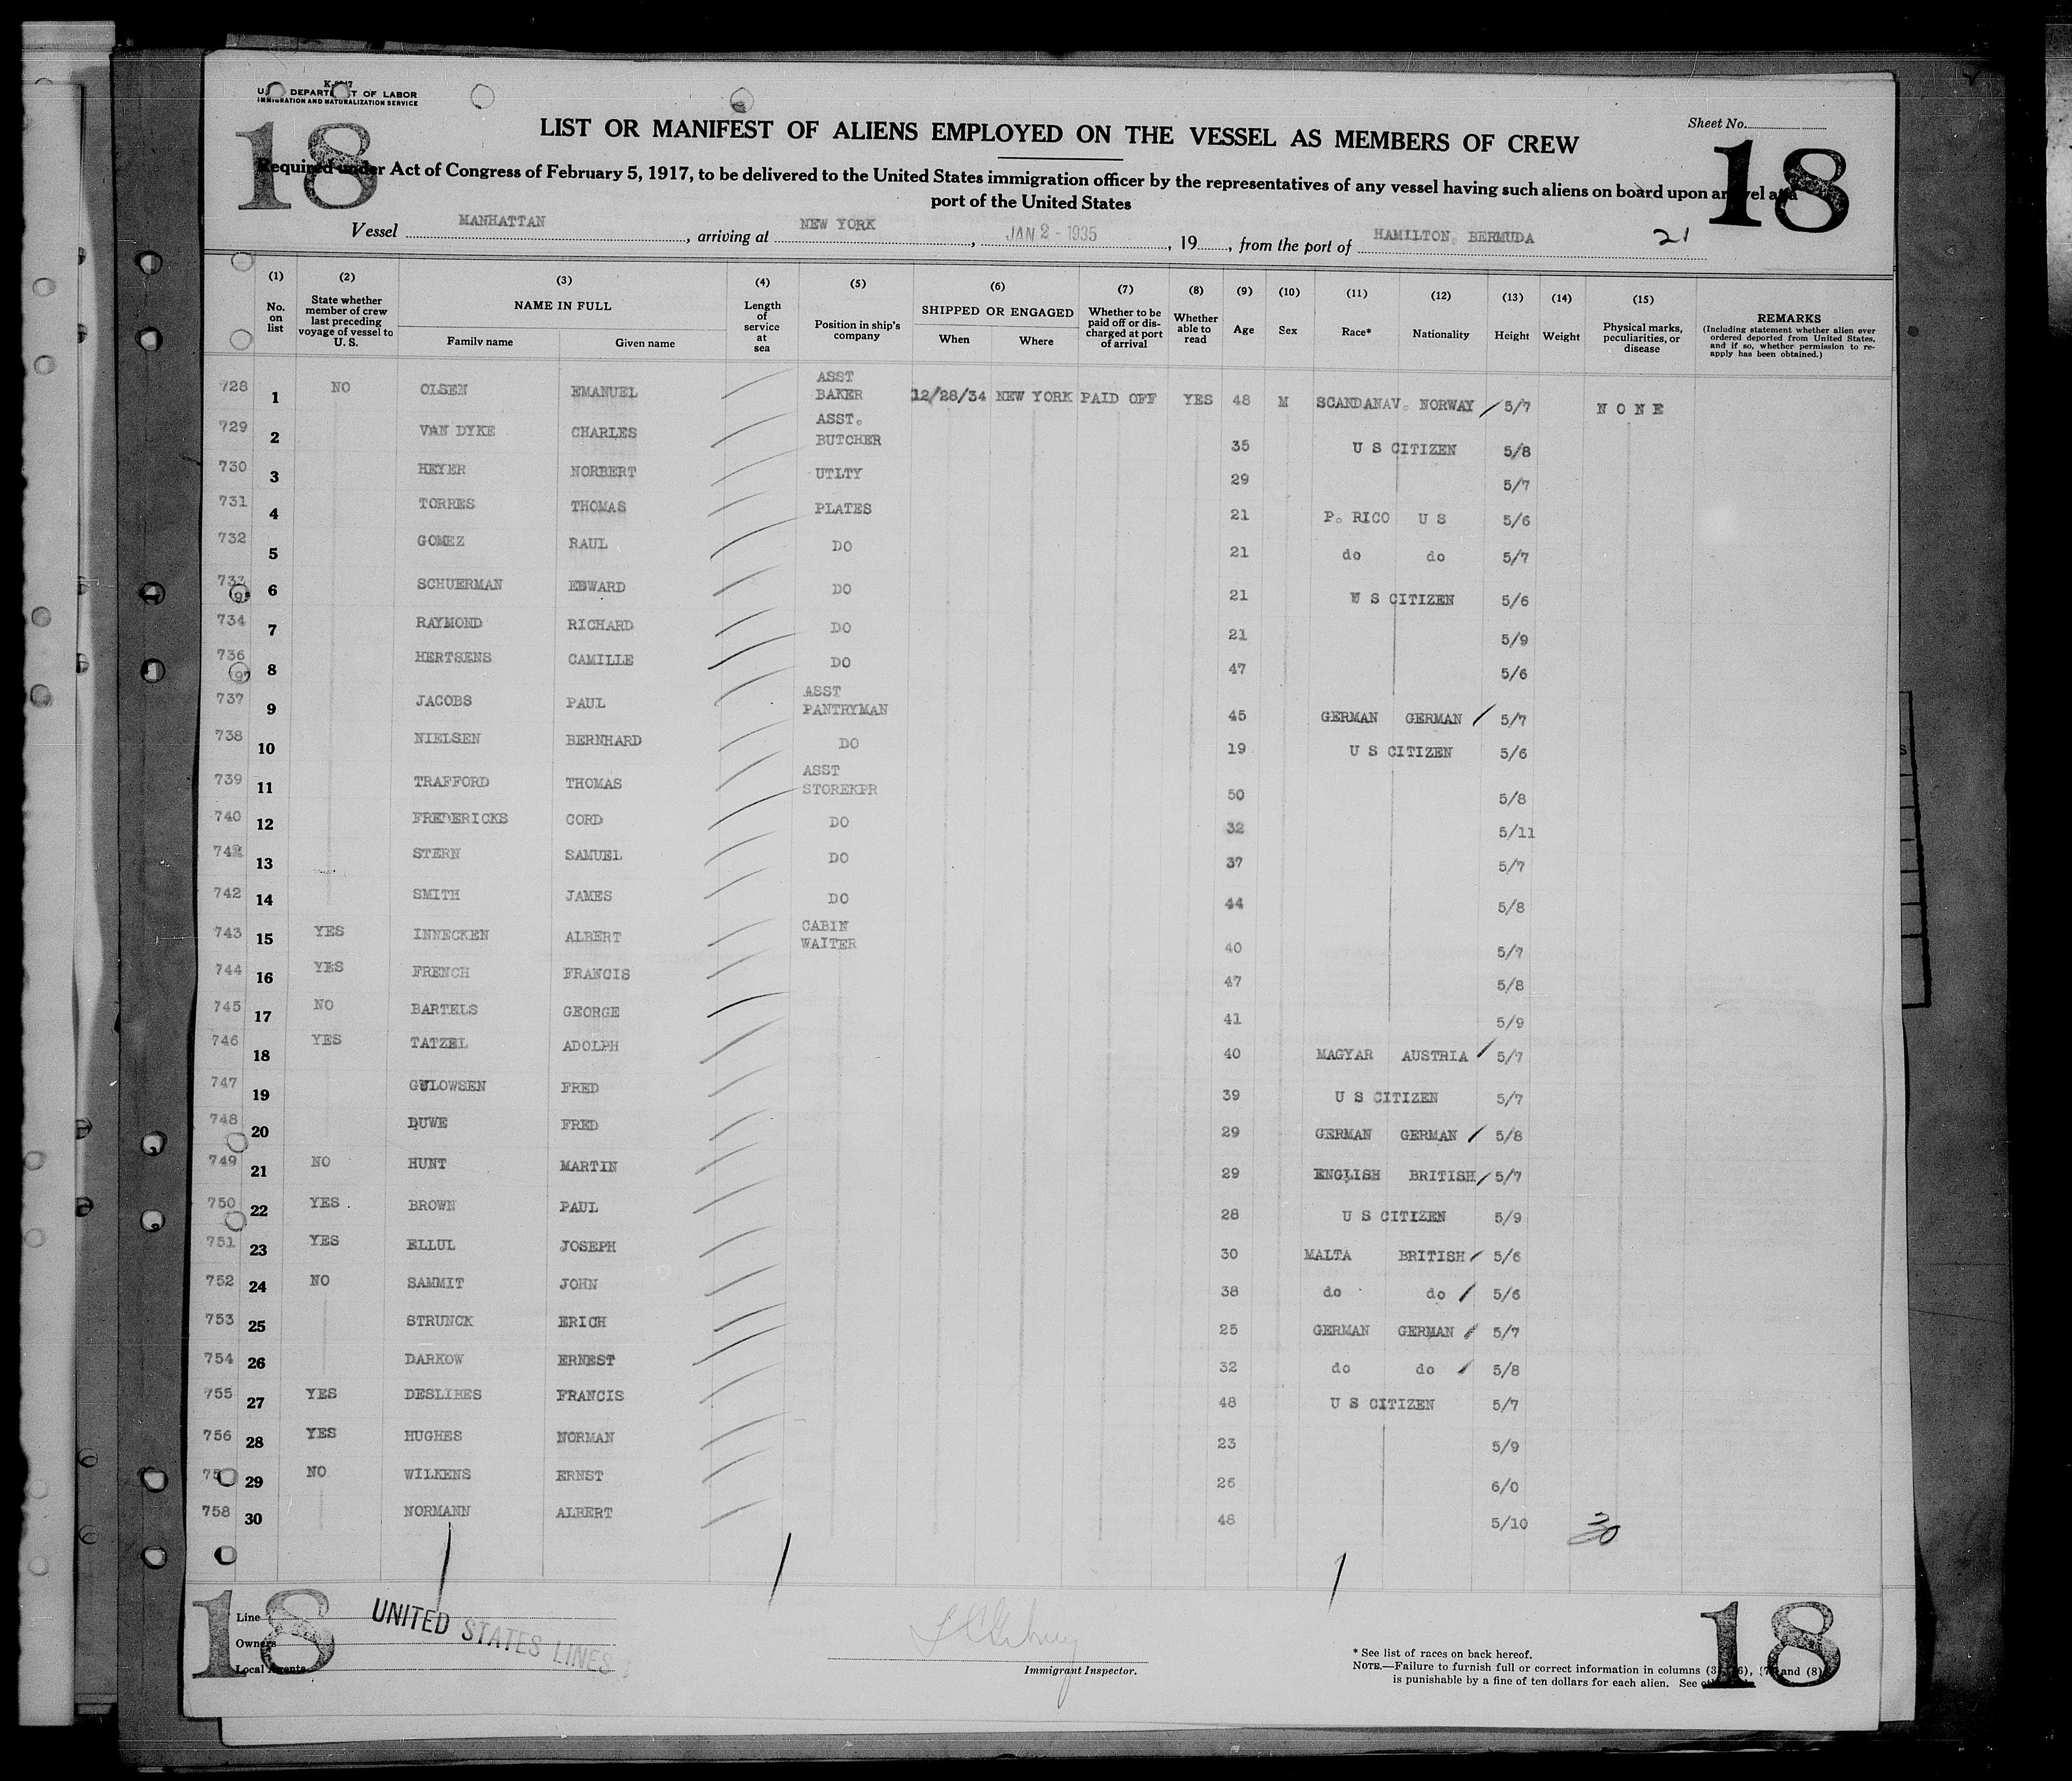 K-8-17
U. S. DEPARTMENT OF LABOR
IMMIGRATION AND NATURALIZATION SERVICE
18
Sheet No.
18
LIST OR MANIFEST OF ALIENS EMPLOYED ON THE VESSEL AS MEMBERS OF CREW
Required under Act of Congress of February 5, 1917, to be delivered to the United States immigration officer by the representatives of any vessel having such aliens on board upon arrival at a
port of the United States
Vessel MANHATTAN, arriving at NEW YORK, JAN 2 - 1935, 19, from the port of HAMILTON, BERMUDA 21
(1) (2) (3) (4) (5) (6) (7) (8) (9) (10) (11) (12) (13) (14) (15)
No. on list
State whether member of crew last preceding voyage of vessel to U. S.
NAME IN FULL
Family name
Given name
Length of service at sea
Position in ship's company
SHIPPED OR ENGAGED
When
Where
Whether to be paid off or discharged at port of arrival
Whether able to read
Age
Sex
Race*
Nationality
Height
Weight
Physical marks, peculiarities, or disease
REMARKS
(Including statement whether alien ever ordered deported from United States, and if so, whether permission to re-apply has been obtained.)
728 1 NO OLSEN EMANUEL ASST BAKER 12/28/34 NEW YORK PAID OFF YES 48 M SCANDANAV. NORWAY 5/7 NONE
729 2 VAN DYKE CHARLES ASST. BUTCHER 35 U S CITIZEN 5/8
730 3 HEYER NORBERT UTLTY 29 5/7
731 4 TORRES THOMAS PLATES 21 P. RICO U S 5/6
732 5 GOMEZ RAUL DO 21 do do 5/7
733 6 SCHUERMAN EDWARD DO 21 U S CITIZEN 5/6
734 7 RAYMOND RICHARD DO 21 5/9
736 8 HERTSENS CAMILLE DO 47 5/6
737 9 JACOBS PAUL ASST PANTRYMAN 45 GERMAN GERMAN 5/7
738 10 NIELSEN BERNHARD DO 19 U S CITIZEN 5/6
739 11 TRAFFORD THOMAS ASST STOREKPR 50 5/8
740 12 FREDERICKS CORD DO 32 5/11
13 STERN SAMUEL DO 37 5/7
742 14 SMITH JAMES DO 44 5/8
743 15 YES INNECKEN ALBERT CABIN WAITER 40 5/7
744 16 YES FRENCH FRANCIS 47 5/8
745 17 NO BARTELS GEORGE 41 5/9
746 18 YES TATZEL ADOLPH 40 MAGYAR AUSTRIA 5/7
747 19 GULOWSEN FRED 39 U S CITIZEN 5/7
748 20 DUWE FRED 29 GERMAN GERMAN 5/8
749 21 NO HUNT MARTIN 29 ENGLISH BRITISH 5/7
750 22 YES BROWN PAUL 28 U S CITIZEN 5/9
751 23 YES ELLUL JOSEPH 30 MALTA BRITISH 5/6
752 24 NO SAMMIT JOHN 38 do do 5/6
753 25 STRUNCK ERICH 25 GERMAN GERMAN 5/7
754 26 DARKOW ERNEST 32 do do 5/8
755 27 YES DESLIBES FRANCIS 48 U S CITIZEN 5/7
756 28 YES HUGHES NORMAN 23 5/9
29 NO WILKENS ERNST 26 6/0
758 30 NORMANN ALBERT 48 5/10 30
18
Line
Owners
Local Agents
UNITED STATES LINES
Immigrant Inspector.
* See list of races on back hereof.
NOTE.—Failure to furnish full or correct information in columns (3), (6), (7) and (8)
is punishable by a fine of ten dollars for each alien. See
18